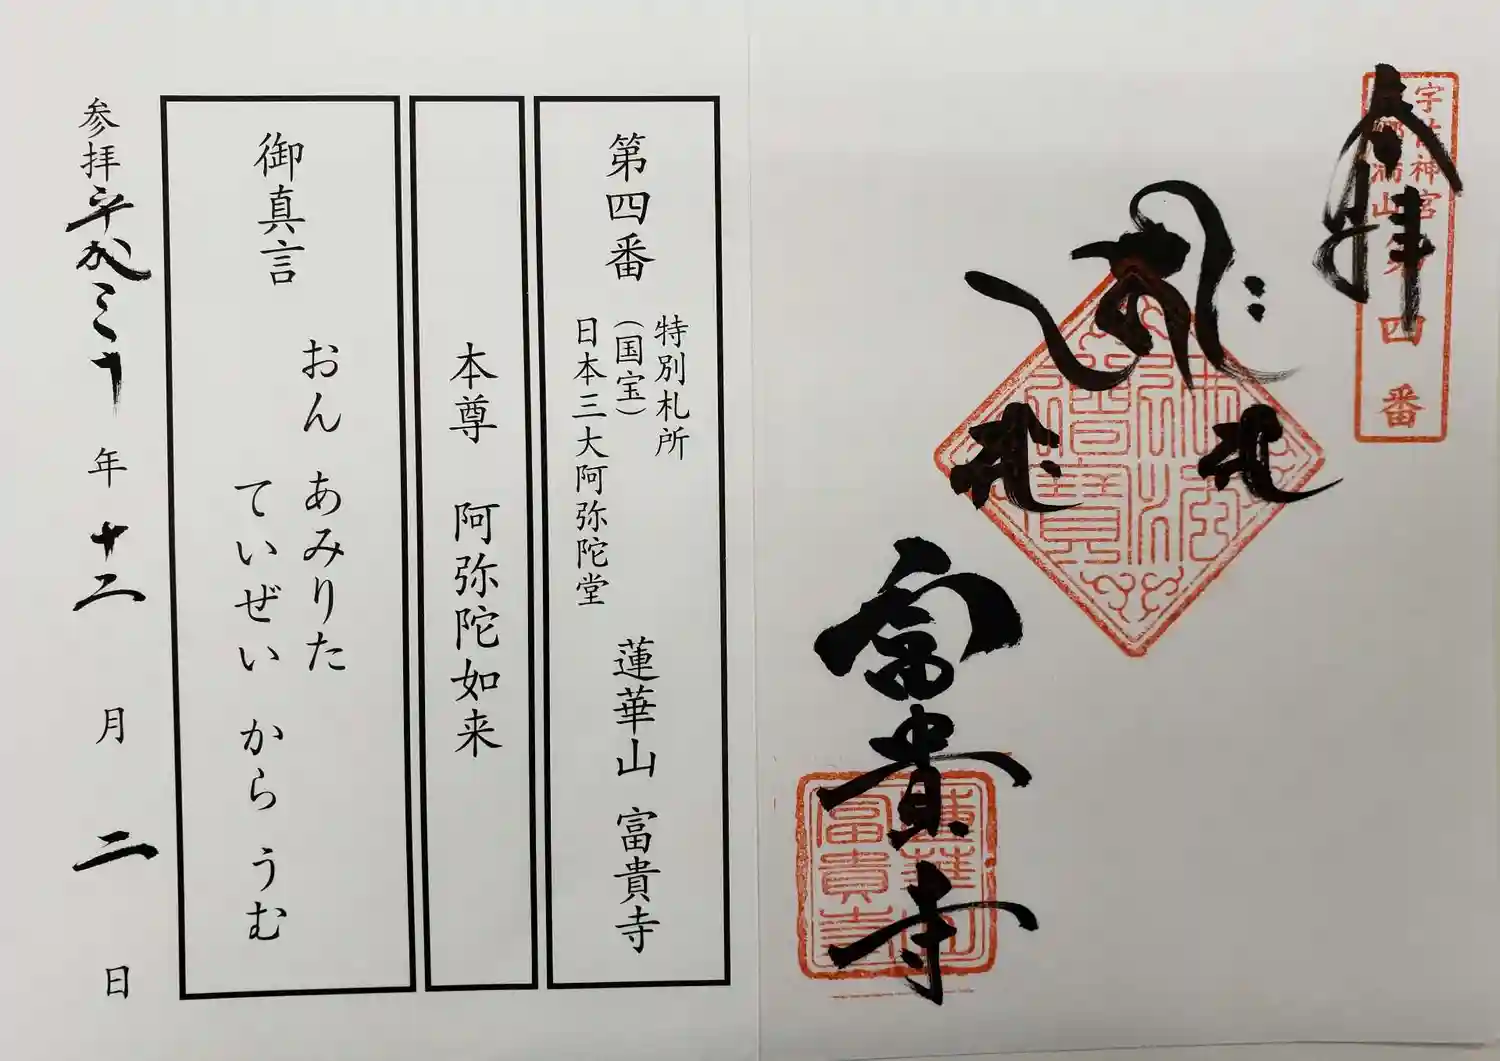 宇佐神宮
六郷満山 第四番
奉拝
佛法僧寶
富貴寺
蓮華山
富貴寺
第四番
特別札所
(国宝)
日本三大阿弥陀堂
蓮華山 富貴寺
本尊 阿弥陀如来
御真言
おん あみりた
ていぜい から うむ
参拝平成三十年十二月二日